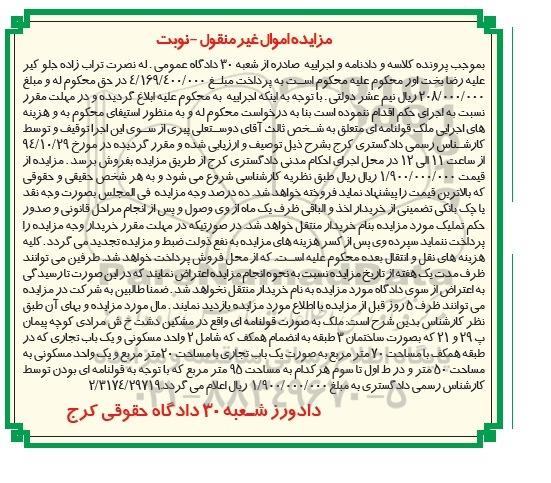 مزایده اموال غیر منقول -نوبت
بموجب پرونده کلاسه و دادنامه و اجراییه صادره از شعبه ۳۰ دادگاه عمومی . له نصرت تراب زاده جلو گیر
علیه رضا بخت اور محکوم علیه محکوم است به پرداخت مبلغ ۴/۱۶۹/۴۰۰/۰۰۰ در حق محکوم له و مبلغ
۲۰۸/۰۰۰/۰۰۰ ریال نیم عشر دولتی . با توجه به اینکه اجراییه به محکوم علیه ابلاغ گردیده و در مهلت مقرر
نسبت به اجرای حکم اقدام ننموده است بنا به درخواست محکوم له و به منظور استیفای محکوم به و هزینه
های اجرایی ملک قولنامه ای متعلق به شخص ثالث آقای دوستعلی پیری از سوی این اجرا توقیف و توسط
کارشناس رسمی دادگستری کرج بشرح ذیل توصیف و ارزیابی شده و مقرر گردیده در مورخ ۹۴/۱۰/۲۹
از ساعت ۱۱ الی ۱۲ در محل اجرای احکام مدنی دادگستری کرج از طریق مزایده بفروش برسد . مزایده از
قیمت ۱/۹۰۰/۰۰۰/۰۰۰ ریال طبق نظریه کارشناسی شروع می شود و به هر شخص حقیقی و حقوقی
که بالاترین قیمت را پیشنهاد نماید فروخته خواهد شد. ده درصد وجه مزایده فی المجلس بصورت وجه نقد
یا چک بانکی تضمینی از خریدار اخذ و الباقی ظرف یک ماه از وی وصول و پس از انجام مراحل قانونی و صدور
حکم تملیک مورد مزایده بنام خریدار منتقل خواهد شد. در صورتیکه در مهلت مقرر خریدار وجه مزایده را
پرداخت ننماید سپرده وی پس از کسر هزینه های مزایده به نفع دولت ضبط و مزایده تجدید می گردد . کلیه
هزینه های نقل و انتقال بعده محکوم علیه است. که از محل فروش پرداخت خواهد شد. طرفین می توانند
ظرف مدت یک هفته از تاریخ مزایده نسبت به نحوه انجام مزایده اعتراض نمایند که در این صورت تا رسیدگی
به اعتراض از سوی دادگاه مورد مزایده به نام خریدار منتقل نخواهد شد . ضمنا طالبین به شرکت در مزایده
می توانند ظرف ۵ روز قبل از مزایده با اطلاع مورد مزایده بازدید نمایند . مال مورد مزایده و بهای آن طبق
نظر کارشناس بدین شرح است: ملک به صورت قولنامه ای واقع در مشکین دشت خ ش مرادی کوچه پیمان
پ ۲۹ و ۲۱ که بصورت ساختمان ۳ طبقه به انضمام همکف که شامل ۲ واحد مسکونی و یک باب تجاری که در
طبقه همکف با مساحت ۷۰ متر مربع به صورت یک باب تجاری با مساحت ۲۰ متر مربع و یک واحد مسکونی به
مساحت ۵۰ متر و در ط اول تا سوم هر کدام به مساحت ۹۵ متر مربع که با توجه به قولنامه ای بودن توسط
کارشناس رسمی دادگستری به مبلغ ۱/۹۰۰/۰۰۰/۰۰۰ ریال اعلام می گردد. ۲/۳۱۷۴/۲۹۷۱۹
دادورز شعبه ۳۰ دادگاه حقوقی کرج
۰۲۱-۸۸۳۴۹۶۷۰-۵